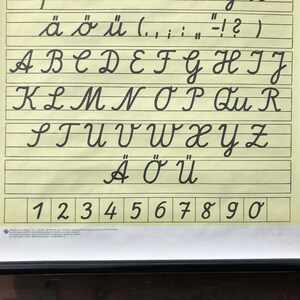 ä ö ü ( . , ; : „ "-! ? )
A B C D E F G H I J
K L M N O P Qu R
S T U V W X Y Z
Ä Ö Ü
1 2 3 4 5 6 7 8 9 0